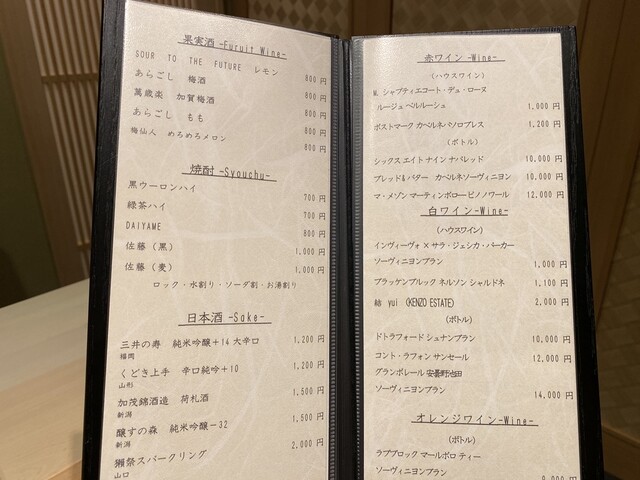 果実酒 -Furuit Wine-
SOUR TO THE FUTURE レモン 800 円
あらごし 梅酒 800 円
萬歳楽 加賀梅酒 800 円
あらごし もも 800 円
梅仙人 めろめろメロン 800 円
焼酎 -Syouchu-
黒ウーロンハイ 700 円
緑茶ハイ 700 円
DAIYAME 800 円
佐藤（黒） 1,000 円
佐藤（麦） 1,000 円
ロック・水割り・ソーダ割・お湯割り
日本酒 -Sake-
三井の寿 純米吟醸＋14 大辛口 1,200 円
福岡
くどき上手 辛口純吟＋10 1,200 円
山形
加茂錦酒造 荷札酒 1,500 円
新潟
醸すの森 純米吟醸－32 1,500 円
新潟
獺祭スパークリング 2,000 円
山口
赤ワイン -Wine-
（ハウスワイン）
M. シャプティエコート・デュ・ローヌ
ルージュ ベルルーシュ 1,000 円
ポストマーク カベルネパソロブレス 1,200 円
（ボトル）
シックス エイト ナイン ナパレッド 10,000 円
ブレッド&バター カベルネソーヴィニヨン 10,000 円
マ・メゾン マーティンボロー ピノノワール 12,000 円
白ワイン -Wine-
（ハウスワイン）
インヴィーヴォ × サラ・ジェシカ・パーカー
ソーヴィニヨンブラン 1,000 円
ブラッケンブルック ネルソン シャルドネ 1,100 円
結 yui （KENZO ESTATE） 2,000 円
（ボトル）
ドトラフォード シュナンブラン 10,000 円
コント・ラフォン サンセール 12,000 円
グランポレール 安曇野池田
ソーヴィニヨンブラン 14,000 円
オレンジワイン -Wine-
（ボトル）
ラブブロック マールボロ ティー
ソーヴィニヨンブラン